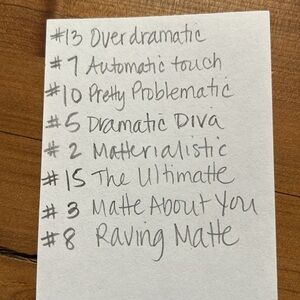 #13 Overdramatic
#7 Automatic touch
#10 Pretty Problematic
#5 Dramatic Diva
#2 Matterialistic
#15 The Ultimatte
#3 Matte About You
#8 Raving Matte